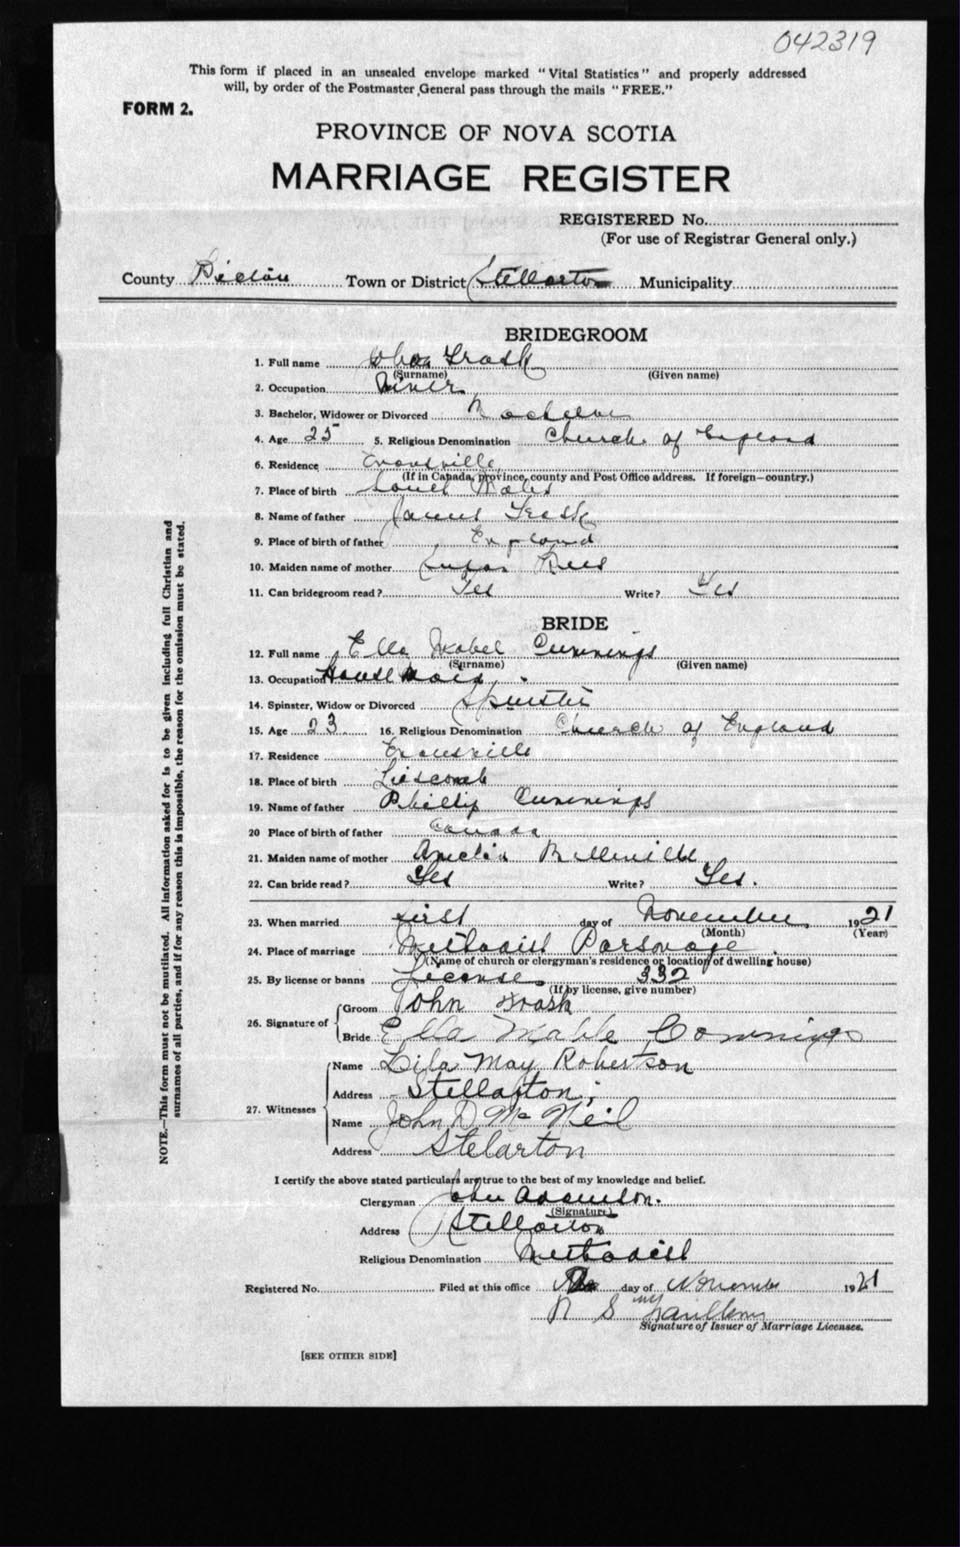 042319
This form if placed in an unsealed envelope marked "Vital Statistics" and properly addressed
will, by order of the Postmaster General pass through the mails "FREE."
FORM 2.
PROVINCE OF NOVA SCOTIA
MARRIAGE REGISTER
REGISTERED No.
(For use of Registrar General only.)
County Pictou Town or District Stellarton Municipality
BRIDEGROOM
1. Full name John Trask
(Surname) (Given name)
2. Occupation Miner
3. Bachelor, Widower or Divorced Bachelor
4. Age 25 5. Religious Denomination Church of England
6. Residence Evansville
(If in Canada, province, county and Post Office address. If foreign—country.)
7. Place of birth South Wales
8. Name of father James Trask
9. Place of birth of father England
10. Maiden name of mother Rees
11. Can bridegroom read? Yes Write? Yes
BRIDE
12. Full name Ella Mabel Cummings
(Surname) (Given name)
13. Occupation Housemaid.
14. Spinster, Widow or Divorced Spinster
15. Age 23. 16. Religious Denomination Church of England
17. Residence Evansville
18. Place of birth Liscomb
19. Name of father Phillip Cummings
20 Place of birth of father Canada
21. Maiden name of mother Amelia
22. Can bride read? Yes Write? Yes.
23. When married first day of November, 1921
(Month) (Year)
24. Place of marriage Methodist Parsonage
(Name of church or clergyman's residence or location of dwelling house)
25. By license or banns License 332
(If by license, give number)
26. Signature of Groom John Trask
Bride Ella Mable Commings
27. Witnesses Name Lila May Robertson
Address Stellarton;
Name John D McNeil
Address Stelarton
I certify the above stated particulars are true to the best of my knowledge and belief.
Clergyman John Adamson.
(Signature)
Address Stellarton
Religious Denomination Methodist
Registered No. Filed at this office day of November 1921
Signature of Issuer of Marriage Licenses.
[SEE OTHER SIDE]
NOTE.—This form must not be mutilated. All information asked for is to be given including full Christian and
surnames of all parties, and if for any reason this is impossible, the reason for the omission must be stated.